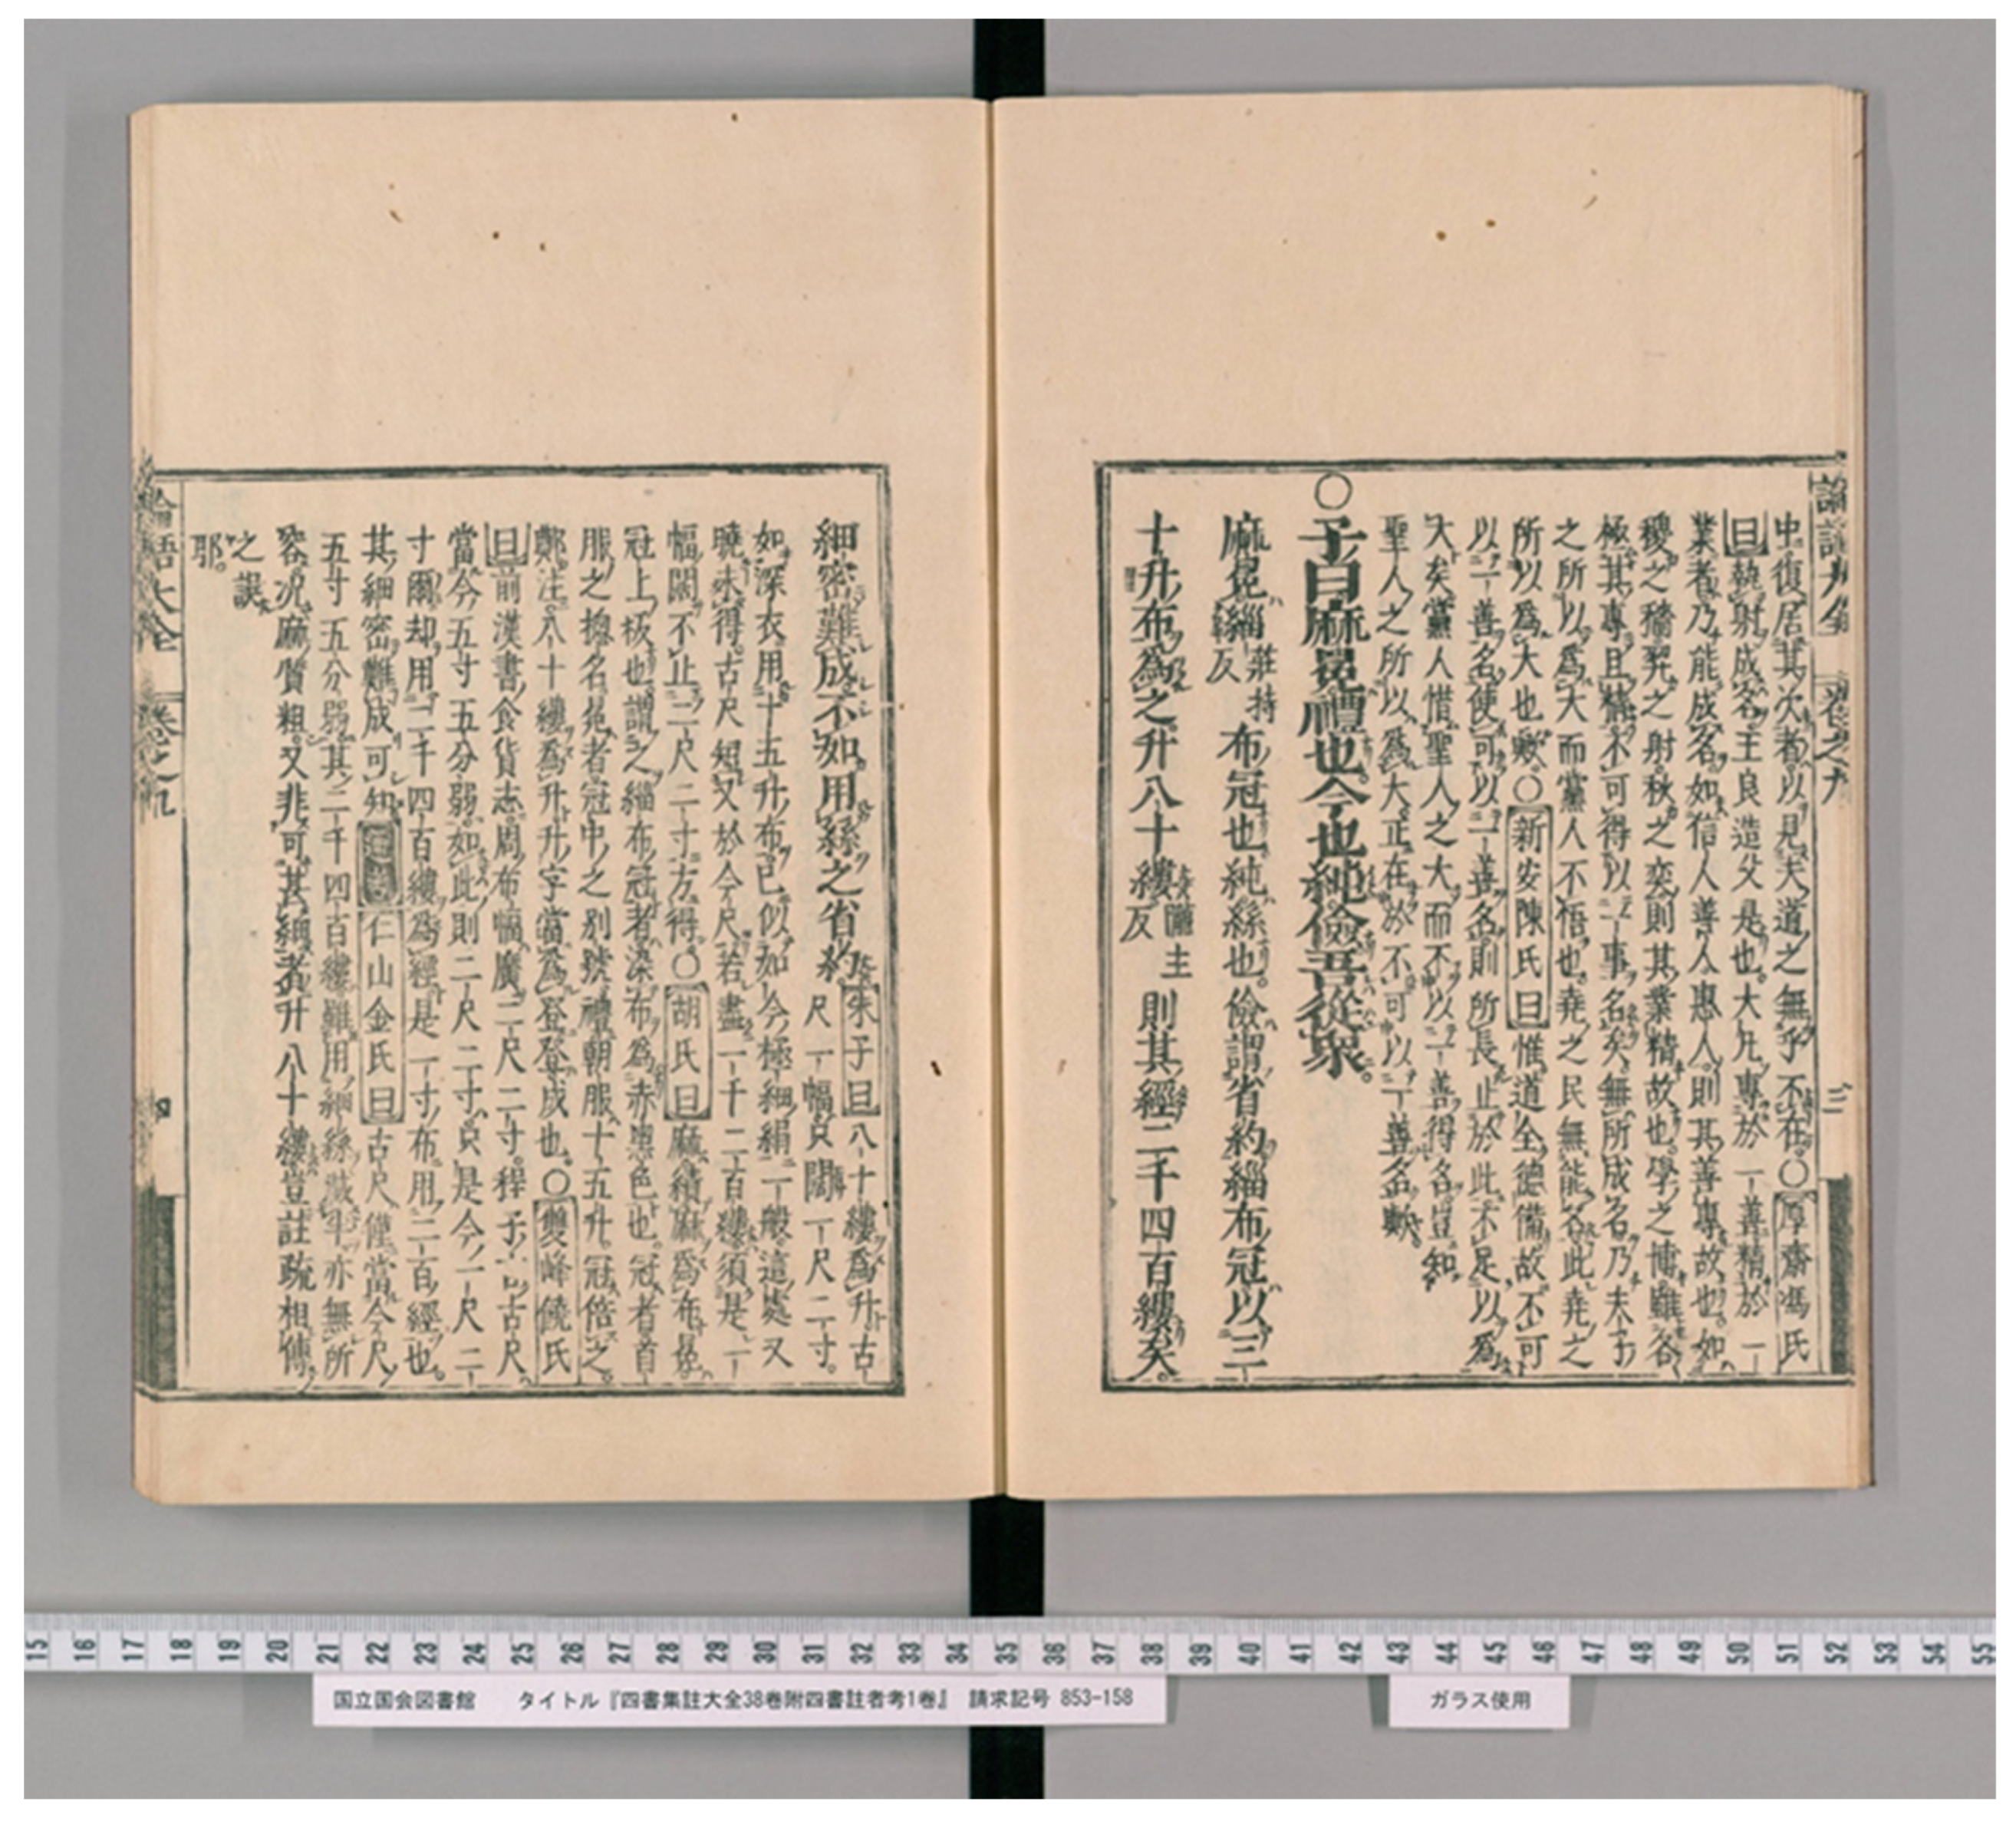 論語大全
卷之九
三
中復居其次者以見夫道之無乎不在○厚齋馮氏
曰執射成名王良造父是也大凡專於一善精於一
業者乃能成名如信人善人惠人則其善專故也如
稷之穡羿之射秋之奕則其業精故也學之博雖各
極其專且精不可得以一事名矣無所成名乃夫子
之所以爲大而黨人不悟也堯之民無能名此堯之
所以爲大也歟○新安陳氏曰惟道全德備故不可
以一善名使可以一善名則所長止於此不足以爲
大矣黨人惜聖人之大而不以一善得名豈知
聖人之所以爲大正在於不可以一善名歟
○子曰麻冕禮也今也純儉吾從衆
麻冕緇莊持反布冠也純絲也儉謂省約緇布冠以三
十升布爲之升八十縷隴主反則其經二千四百縷矣
細密難成不如用絲之省約朱子曰八十縷爲升古尺一幅只闊一尺二寸
如深衣用十五升布已似如今極細絹一般這處又
曉未得古尺短又於今尺若盡一千二百縷須是一
幅闊不止二尺二寸方得○胡氏曰麻績麻爲布冕
冠上板也謂之緇布冠者染布爲赤黑色也冠者首
服之揔名冕者冠中之别號禮朝服十五升冠倍之
鄭注八十縷爲升升字當爲登登成也○雙峰饒氏
曰前漢書食貨志周布幅廣二尺二寸程子言古尺
當今五寸五分弱如此則二尺二寸只是今一尺二
寸爾却用二千四百縷爲經是一寸布用二百經也
其細密難成可知仁山金氏曰古尺僅當今尺
五寸五分弱其二千四百縷雖用細絲減半亦無所
容况麻質粗又非可甚細者升八十縷豈註疏相傳
之誤
耶
論語大全
卷之九
四
15 16 17 18 19 20 21 22 23 24 25 26 27 28 29 30 31 32 33 34 35 36 37 38 39 40 41 42 43 44 45 46 47 48 49 50 51 52 53 54 55
国立国会図書館 タイトル『四書集註大全38巻附四書註者考1巻』 請求記号 853-158
ガラス使用